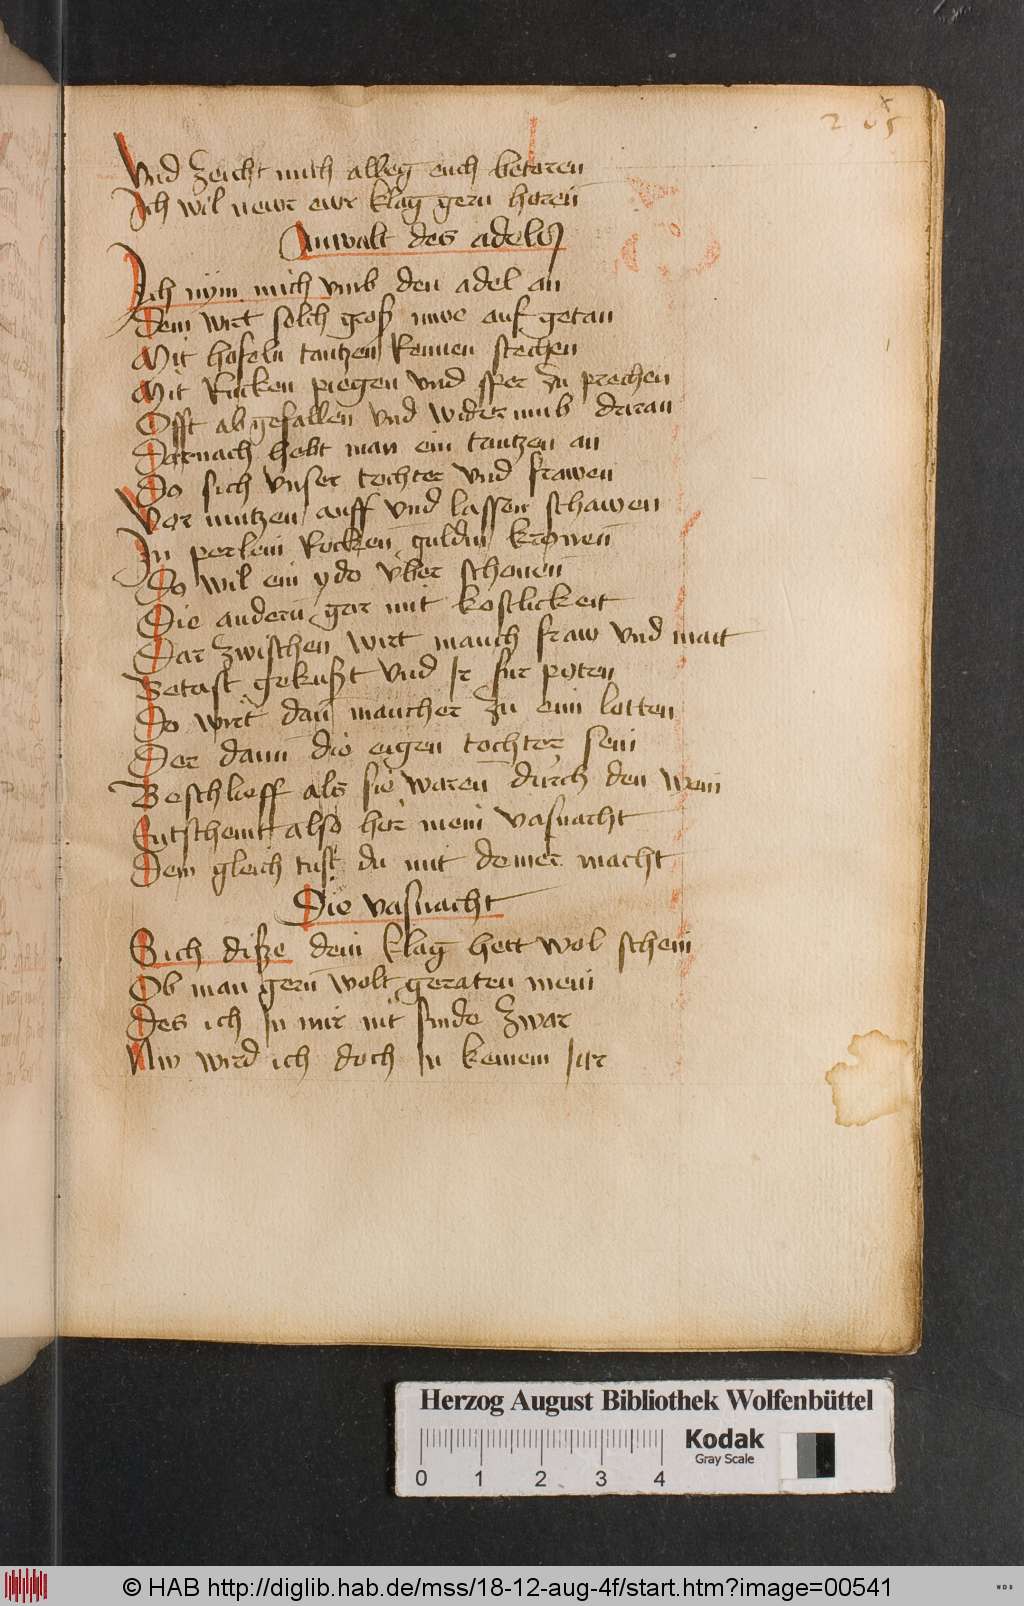 265
Vnd zeicht mich allweg euch betoren
Ich wil newr ewr klag gern horen
Anwalt des adels
Ich nym mich vmb den adel an
Dem wirt solch groß mwe auf getan
Mit hofeln tantzen Rennen stechen
Mit Rucken piegen vnd sper zu prechen
Offt ab gefallen vnd wider umb daran
Darnach hebt man ein tantzen an
Do sich vnser tochter vnd frawen
Vor mutzen auff vnd lassen schawen
In perlein Rocken guldin kronen
So wil ein yde vber schonen
Die andern gar mit kostlickeit
Dar zwischen wirt manch fraw vnd mait
Betast gekußt vnd Ir fur poten
Do wirt dann mancher zu eim lotten
Der dann die eigen tochter sein
Beschlieff als sie waren durch den wein
Entscheint also her mein vasnacht
Dem gleich tust du mit deiner macht
Die vasnacht
Sich diße dein klag hett wol schein
Ob man gern wolt geraten mein
Des ich In mir nit finde zwar
Nw wird ich doch In keinem Iar
Herzog August Bibliothek Wolfenbüttel
Kodak
Gray Scale
0 1 2 3 4
© HAB http://diglib.hab.de/mss/18-12-aug-4f/start.htm?image=00541